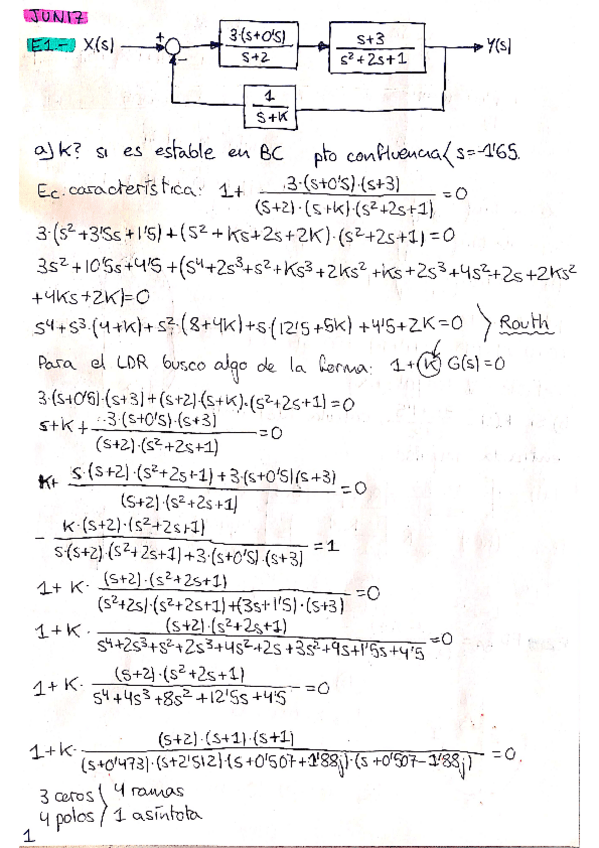 JUN17
E1.- X(s) + - 3·(s+0'5)/(s+2) (s+3)/(s²+2s+1) Y(s)
1/(s+K)
a) K? si es estable en BC pto confluencia < s=-1'65.
Ec. característica: 1+ 3·(s+0'5)·(s+3)/((s+2)·(s+K)·(s²+2s+1)) =0
3·(s²+3'5s+1'5)+(s²+Ks+2s+2K)·(s²+2s+1)=0
3s²+10'5s+4'5+(s⁴+2s³+s²+Ks³+2Ks²+Ks+2s³+4s²+2s+2Ks²
+4Ks+2K)=0
s⁴+s³·(4+K)+s²·(8+4K)+s·(12'5+5K)+4'5+2K=0 > Routh
Para el LDR busco algo de la forma: 1+K G(s)=0
3·(s+0'5)·(s+3)+(s+2)·(s+K)·(s²+2s+1)=0
s+K+ 3·(s+0'5)·(s+3)/((s+2)·(s²+2s+1)) =0
K+ (s·(s+2)·(s²+2s+1)+3·(s+0'5)(s+3))/((s+2)·(s²+2s+1)) =0
- K·(s+2)·(s²+2s+1)/(s·(s+2)·(s²+2s+1)+3·(s+0'5)·(s+3)) =1
1+ K· (s+2)·(s²+2s+1)/((s²+2s)·(s²+2s+1)+(3s+1'5)·(s+3)) =0
1+K· (s+2)·(s²+2s+1)/(s⁴+2s³+s²+2s³+4s²+2s+3s²+9s+1'5s+4'5) =0
1+K· (s+2)·(s²+2s+1)/(s⁴+4s³+8s²+12'5s+4'5) =0
1+K· (s+2)·(s+1)·(s+1)/((s+0'473)·(s+2'512)·(s+0'507+1'88j)·(s+0'507-1'88j)) =0
3 ceros 4 ramas
4 polos 1 asíntota
1